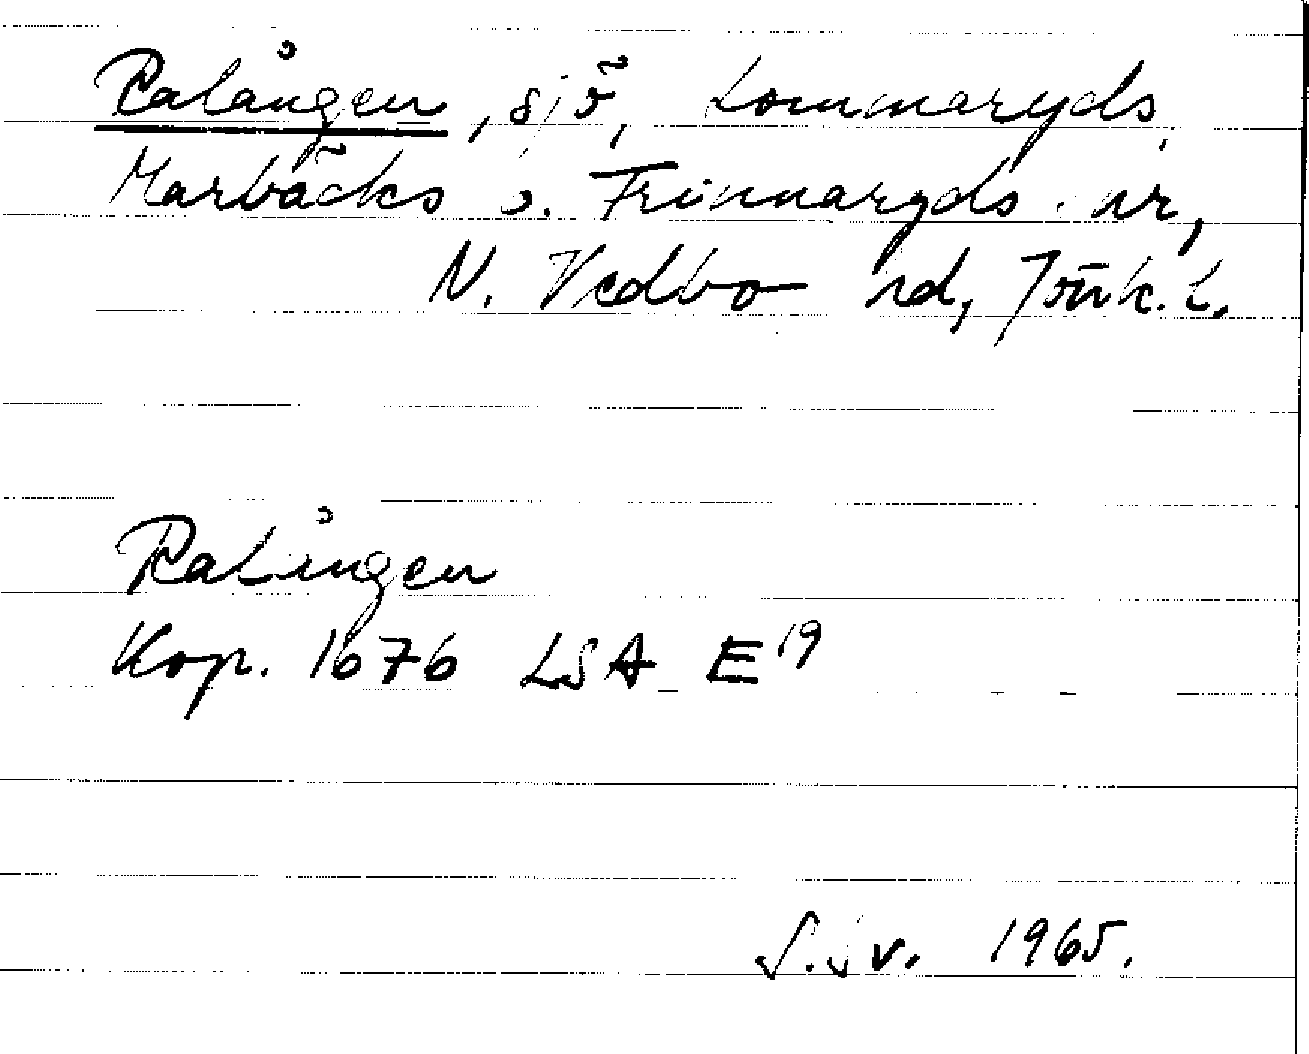 Ralången, sjö, Lommaryds,
Marbäcks o. Frinnaryds snr,
N. Vedbo hd, Jönk. L.
Ralången
Kop. 1676 LSA E 19
1965.